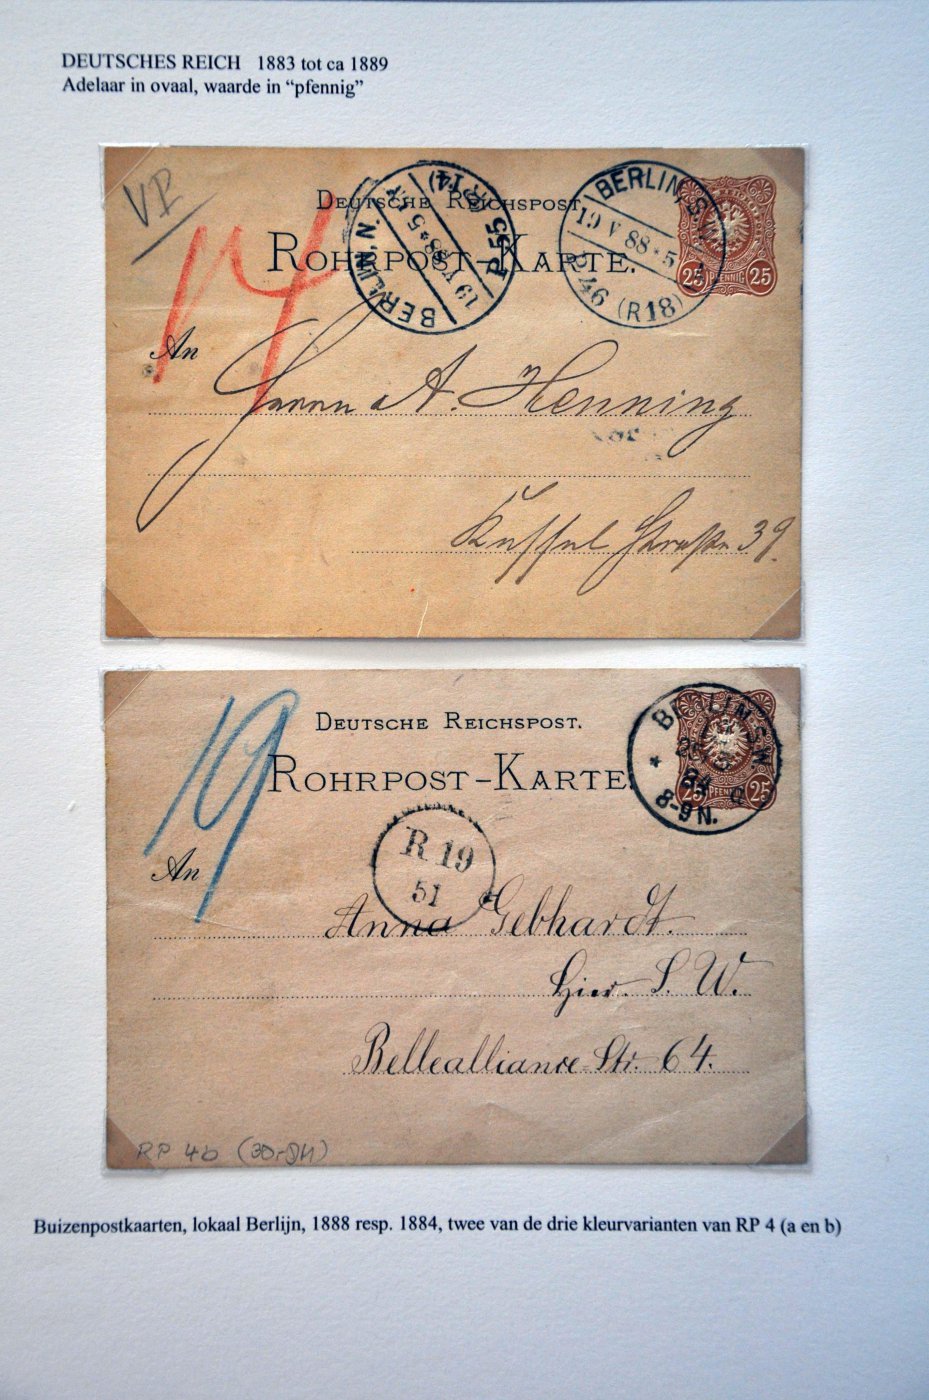 DEUTSCHES REICH 1883 tot ca 1889
Adelaar in ovaal, waarde in “pfennig”
DEUTSCHE REICHSPOST.
ROHRPOST-KARTE.
BERLIN, N.
19 V 88*5
P55 (R14)
BERLIN, S.W.
19 V 88*5
P46 (R18)
25 PFENNIG 25
14
An
Herrn A. Henning
Straße 39.
DEUTSCHE REICHSPOST.
ROHRPOST-KARTE.
BERLIN S.W.
84
8-9 N.
PFENNIG 25
19
R 19
51
An
Anna Gebhardt.
Hier. S. W.
Bellealliance-Str. 64.
RP 4b
Buizenpostkaarten, lokaal Berlijn, 1888 resp. 1884, twee van de drie kleurvarianten van RP 4 (a en b)